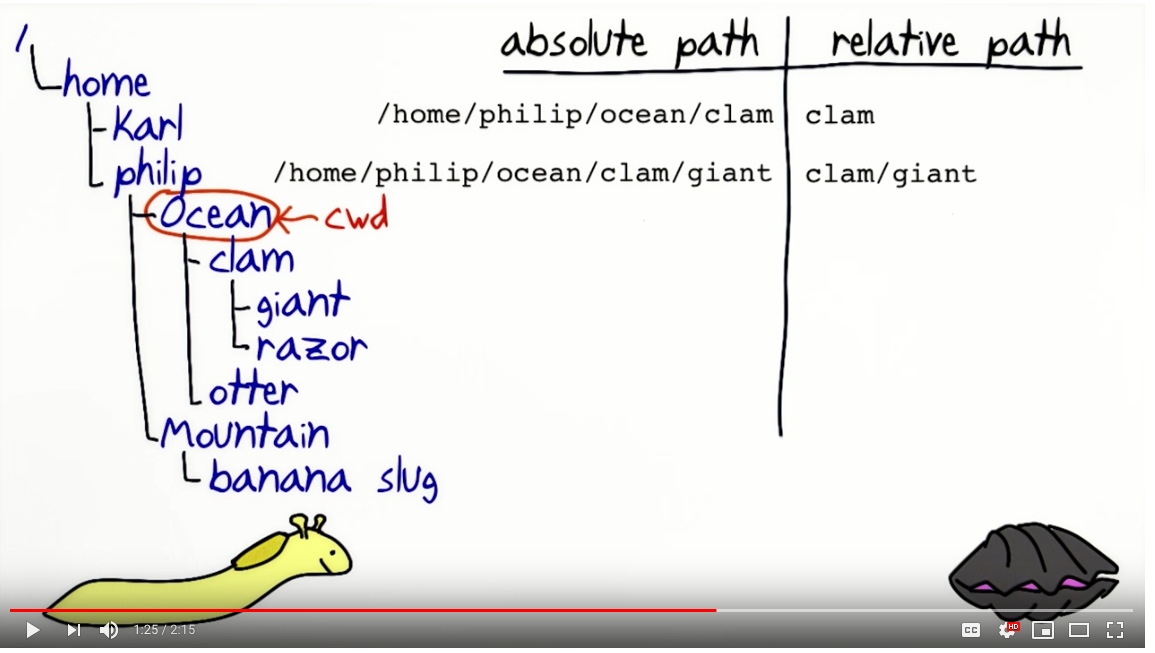 /
home
Karl
philip
Ocean ← cwd
clam
giant
razor
otter
Mountain
banana slug
absolute path relative path
/home/philip/ocean/clam clam
/home/philip/ocean/clam/giant clam/giant
1:25 / 2:15
CC HD